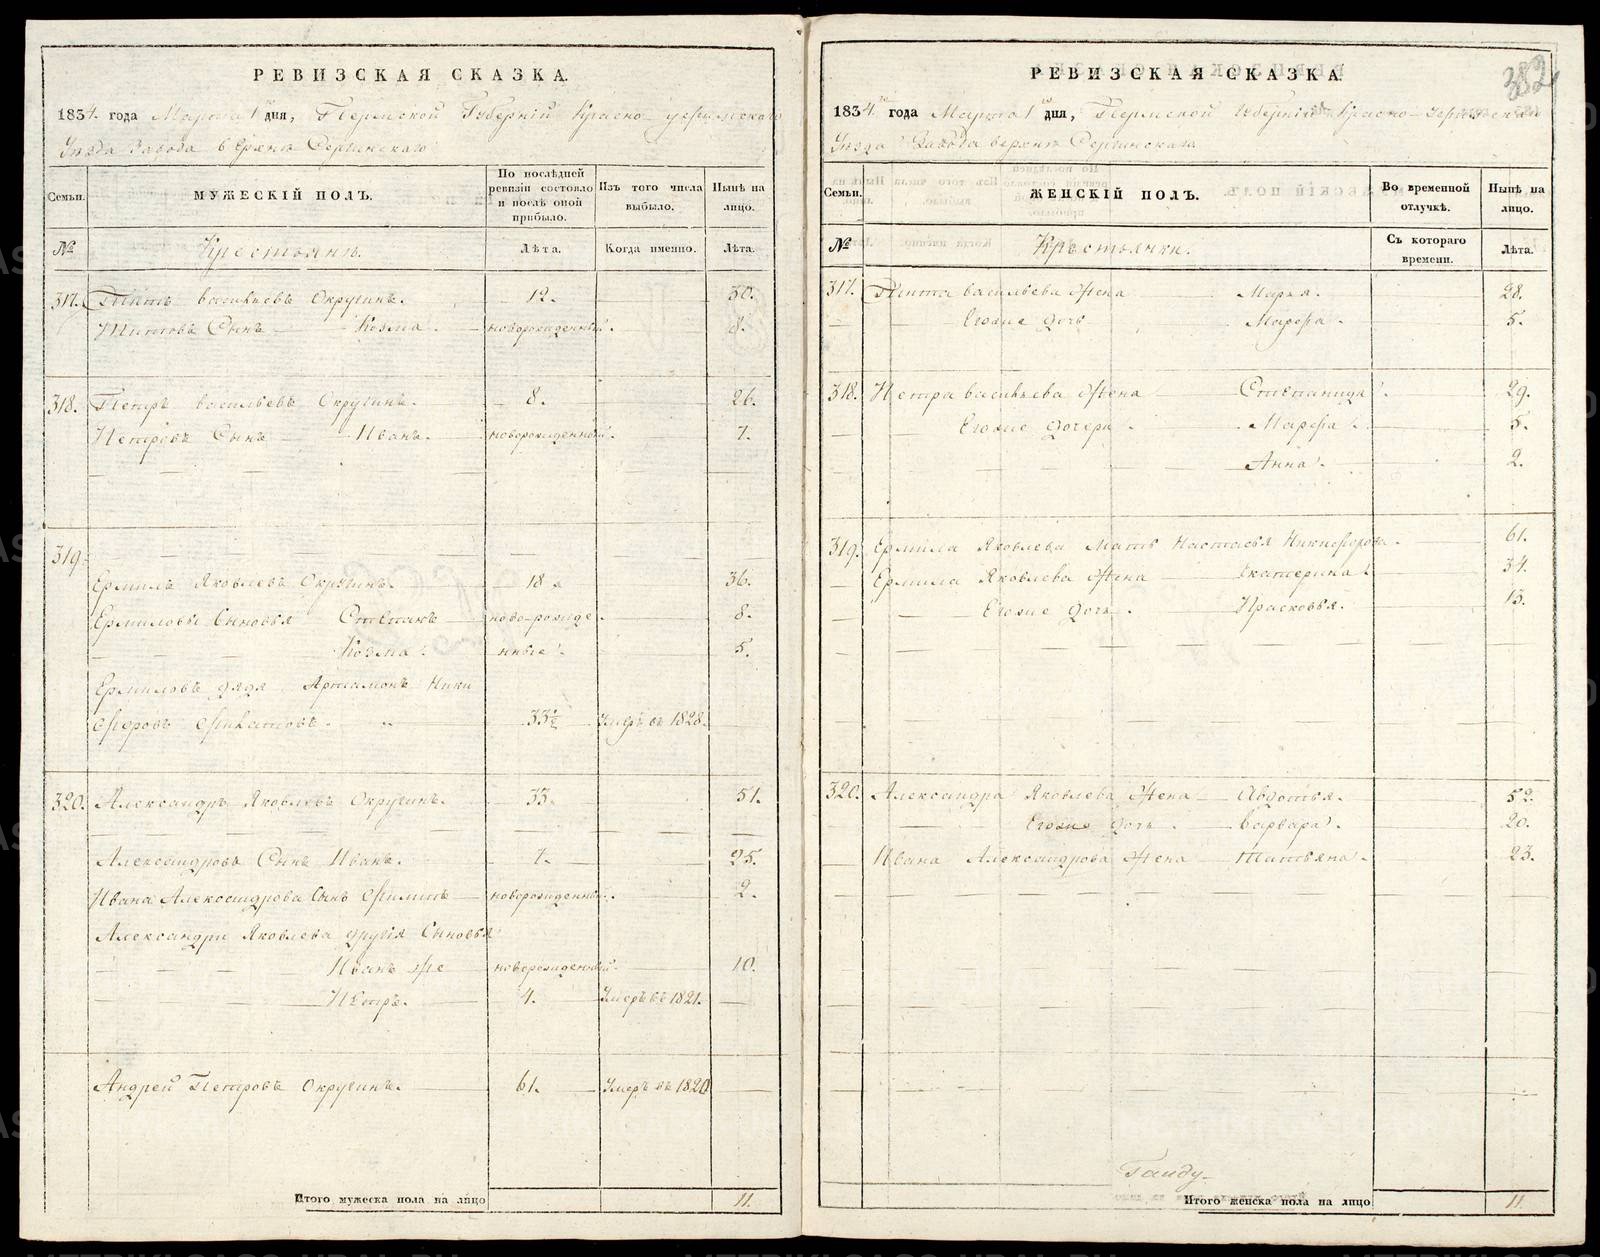 РЕВИЗСКАЯ СКАЗКА.
1834. года Марта 1 дня, Пермской Губерніи Красно-уфимскаго
Уѣзда Завода верхне Сергинскаго
Семьи.
МУЖЕСКІЙ ПОЛЪ.
По послѣдней ревизіи состояло и послѣ оной прибыло.
Изъ того числа выбыло.
Нынѣ на лицо.
№
Крестьянъ.
Лѣта.
Когда именно.
Лѣта.
317. Титъ васильевъ Окручинъ. 12. 30.
Титовъ Сынъ Козма. новорожденный. 8.
318. Петръ васильевъ Окручинъ. 8. 26.
Петровъ Сынъ Иванъ. новорожденный. 7.
319.
Ермилъ Яковлевъ Окручинъ. 18 36.
Ермиловы Сыновья Степанъ ново-рожде 8.
Козма. нные. 5.
Ермиловъ дядя Артамонъ Ники
форовъ 33½ Умеръ въ 1828.
320. Александръ Яковлевъ Окручинъ. 33. 51.
Александровъ Сынъ Иванъ. 7. 25.
Ивана Александрова Сынъ Филипъ новорожденный. 2.
Александра Яковлева другія Сыновья
Иванъ же новорожденный. 10.
Петръ. 4. Умеръ въ 1821.
Андрей Петровъ Окручинъ. 61. Умеръ въ 1820
Итого мужеска пола на лицо 11.
382
РЕВИЗСКАЯ СКАЗКА
1834 года Марта 1 дня, Пермской Губерніи Красно-Уфимскаго
Уѣзда Завода верхне Сергинскаго
Семьи.
ЖЕНСКІЙ ПОЛЪ.
Во временной отлучкѣ.
Нынѣ на лицо.
№
Крестьянки.
Съ котораго времени.
Лѣта.
317. Тита васильева Жена Марья. 28.
Егоже дочь Марфа. 5.
318. Петра васильева Жена Степанида. 29.
Егоже дочери Марфа. 5.
Анна. 2.
319. Ермила Яковлева Мать Настасья Никифорова. 61.
Ермила Яковлева Жена Екатерина. 34.
Егоже дочь. Прасковья. 13.
320. Александра Яковлева Жена Авдотья. 52.
Егоже дочь Варвара. 20.
Ивана Александрова Жена Татьяна. 23.
Итого женска пола на лицо 11.